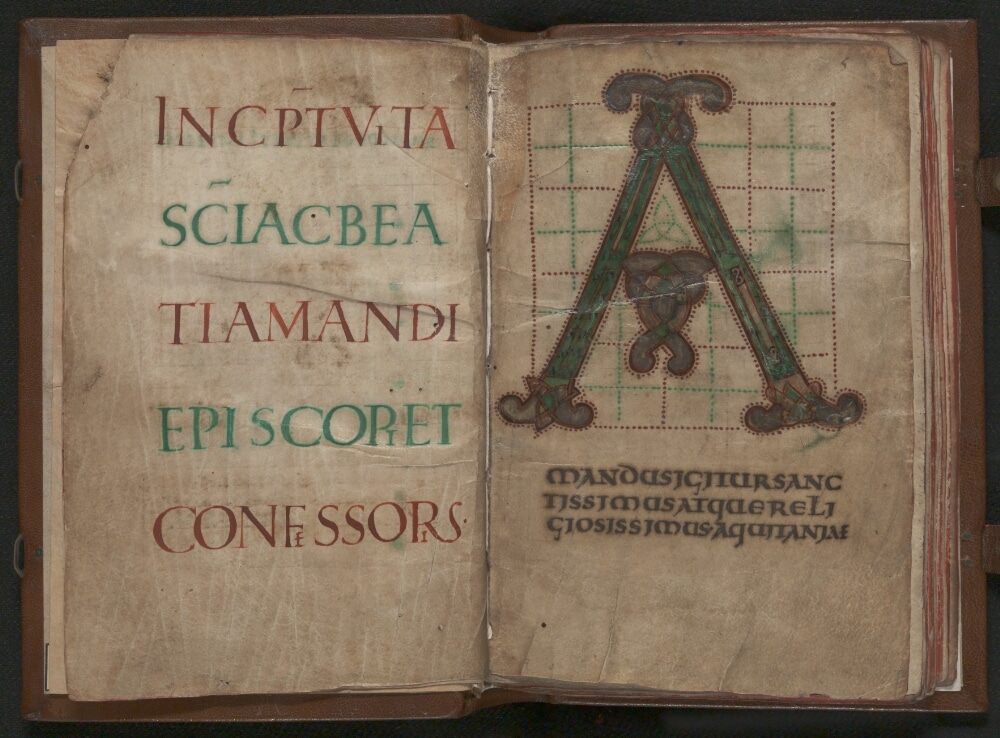 INCP̅TVITA
SC̅IACBEA
TIAMANDI
EPISCOPIET
CONFESSORIS·
A
MANDUSIGITURSANC
TISSIMUSATQUERELI
GIOSISSIMUS·AQUITANIAE